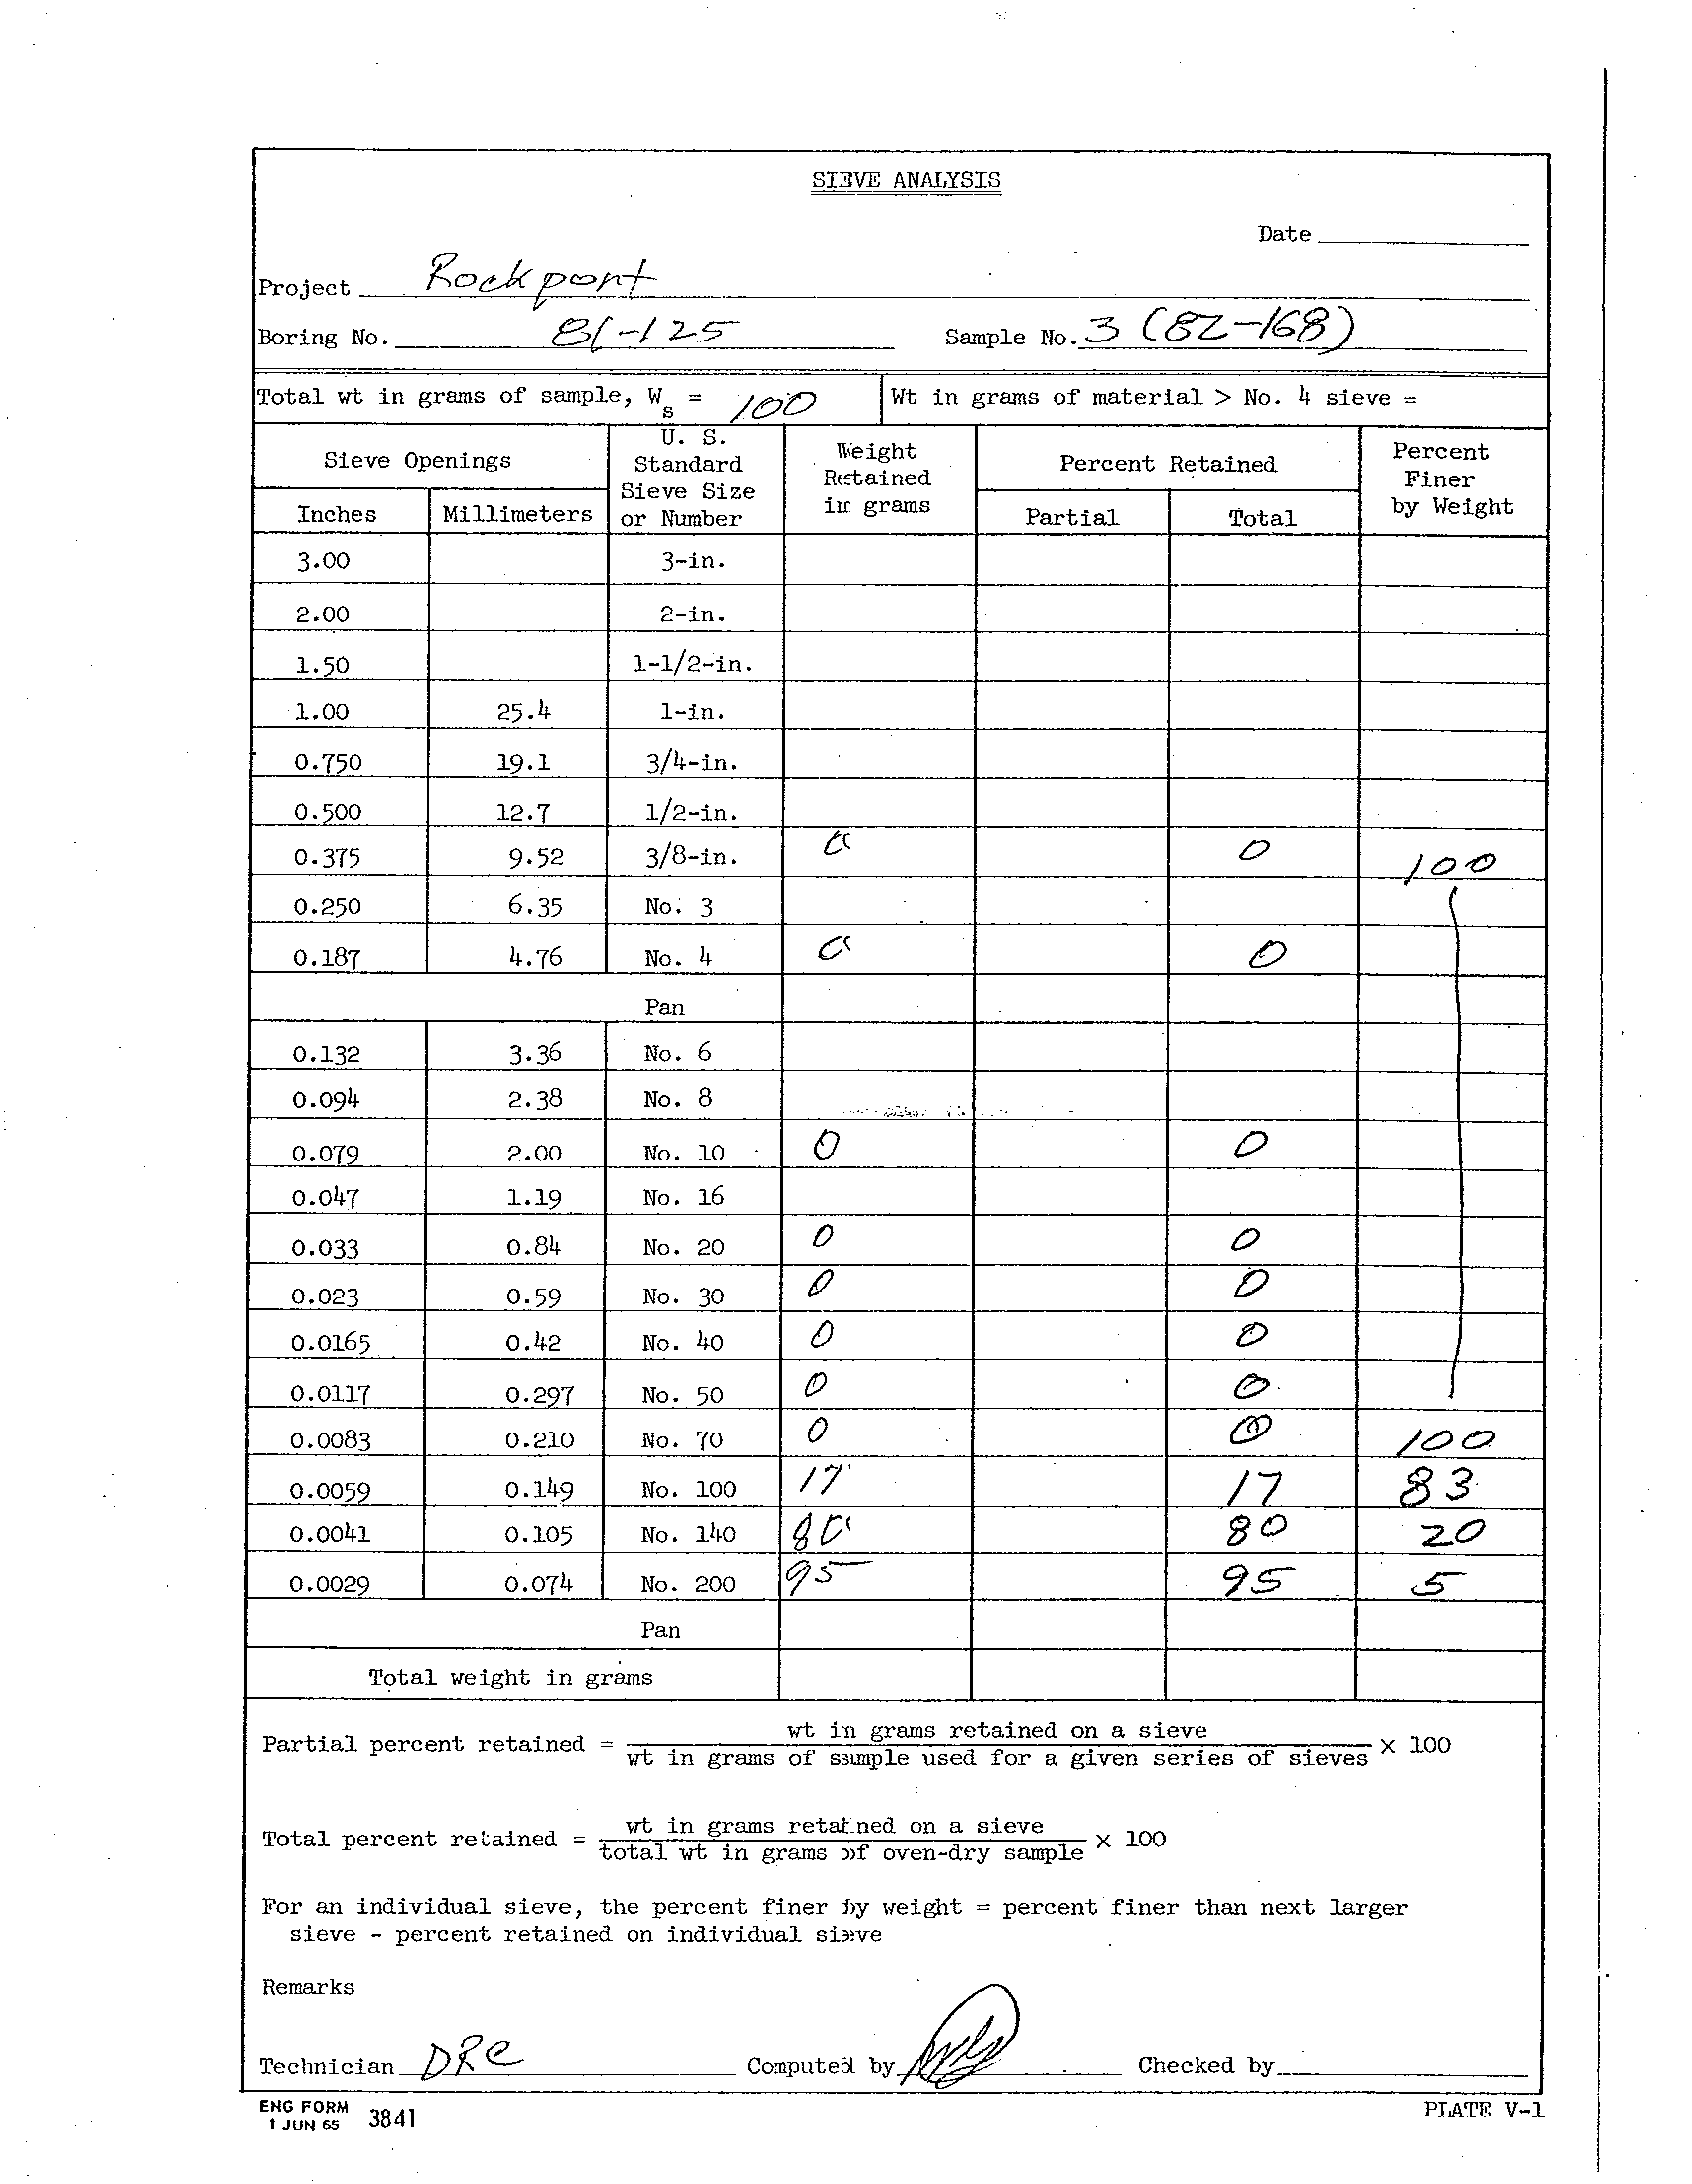 SIEVE ANALYSIS
Date
Project Rockport
Boring No. 81-125 Sample No. 3 (82-168)
Total wt in grams of sample, Ws = 100 Wt in grams of material > No. 4 sieve =
Sieve Openings U. S. Standard Sieve Size or Number Weight Retained in grams Percent Retained Percent Finer by Weight
Inches Millimeters Partial Total
3.00 3-in.
2.00 2-in.
1.50 1-1/2-in.
1.00 25.4 1-in.
0.750 19.1 3/4-in.
0.500 12.7 1/2-in.
0.375 9.52 3/8-in. 0 0 100
0.250 6.35 No. 3
0.187 4.76 No. 4 0 0
Pan
0.132 3.36 No. 6
0.094 2.38 No. 8
0.079 2.00 No. 10 0 0
0.047 1.19 No. 16
0.033 0.84 No. 20 0 0
0.023 0.59 No. 30 0 0
0.0165 0.42 No. 40 0 0
0.0117 0.297 No. 50 0 0
0.0083 0.210 No. 70 0 0 100
0.0059 0.149 No. 100 17 17 83
0.0041 0.105 No. 140 80 80 20
0.0029 0.074 No. 200 95 95 5
Pan
Total weight in grams
Partial percent retained = wt in grams retained on a sieve / wt in grams of sample used for a given series of sieves × 100
Total percent retained = wt in grams retained on a sieve / total wt in grams of oven-dry sample × 100
For an individual sieve, the percent finer by weight = percent finer than next larger
sieve - percent retained on individual sieve
Remarks
Technician DRC Computed by Checked by
ENG FORM
1 JUN 65 3841 PLATE V-1